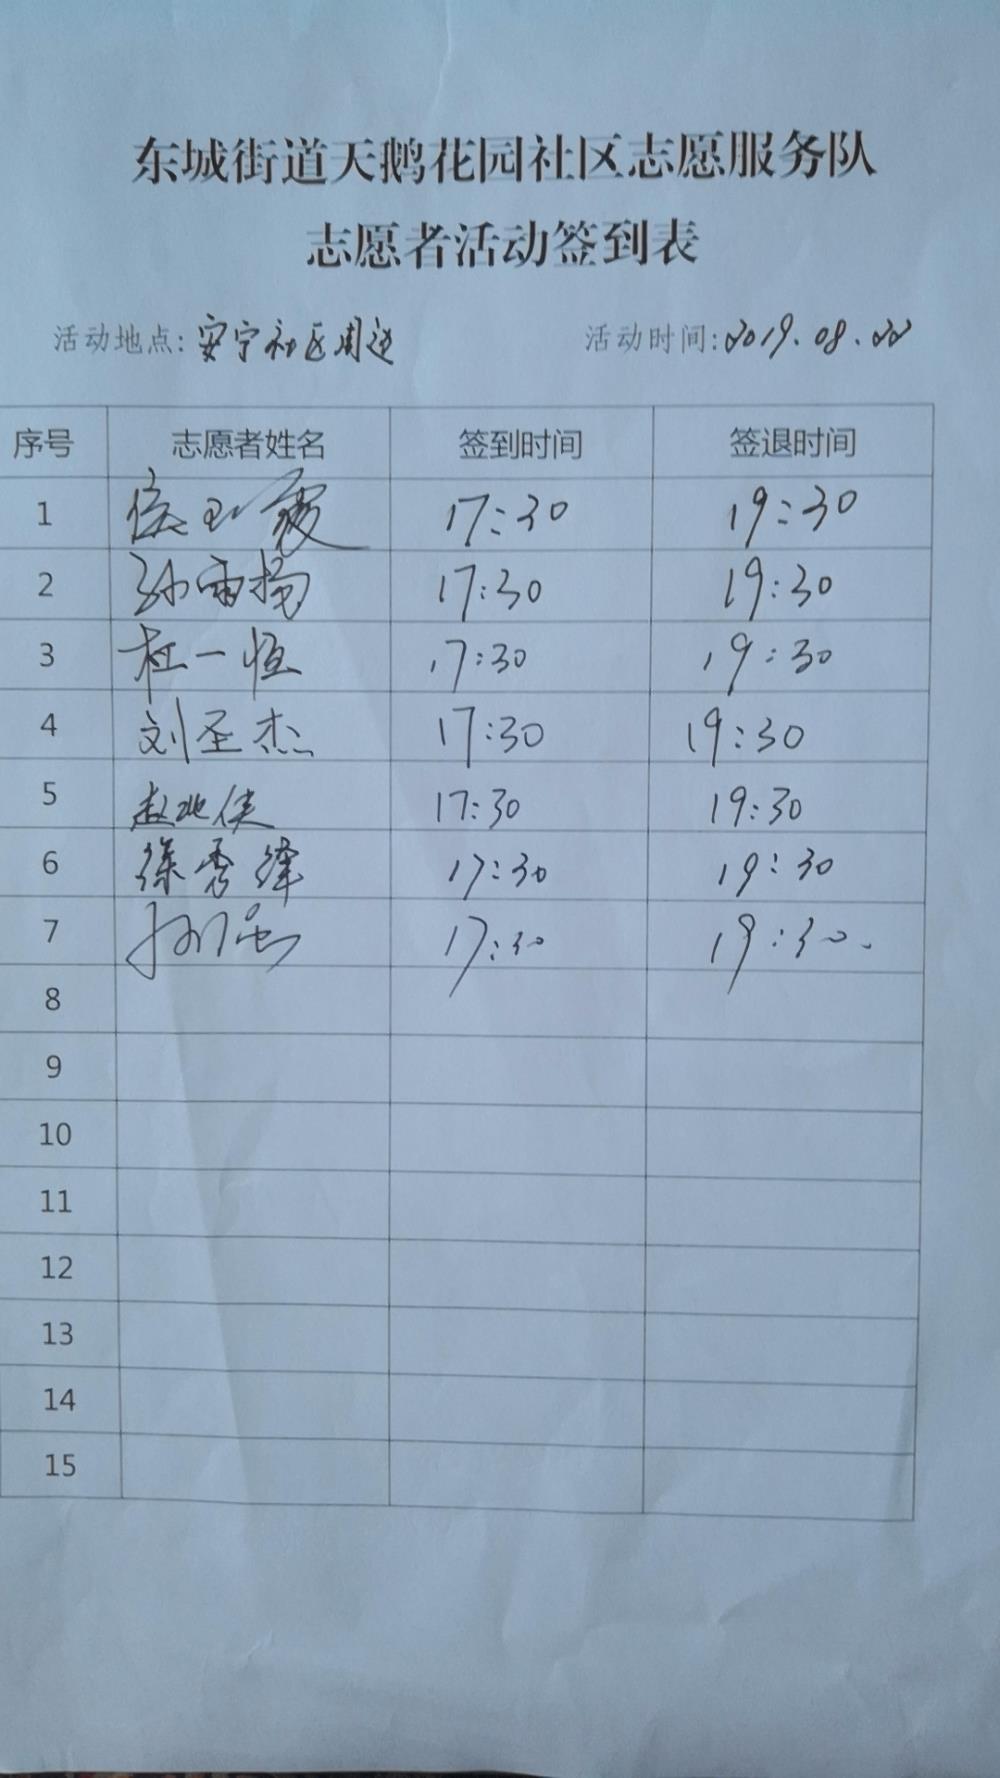 东城街道天鹅花园社区志愿服务队
志愿者活动签到表
活动地点:安宁社区周边 活动时间:2019.08.22
序号 志愿者姓名 签到时间 签退时间
1 侯玉霞 17:30 19:30
2 孙雨扬 17:30 19:30
3 杜一恒 17:30 19:30
4 刘圣杰 17:30 19:30
5 赵兆侠 17:30 19:30
6 徐秀锋 17:30 19:30
7 17:30 19:30.
8
9
10
11
12
13
14
15